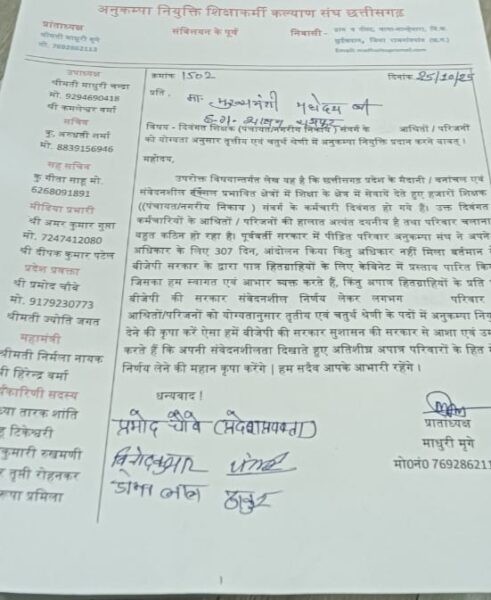 अनुकम्पा नियुक्ति शिक्षाकर्मी कल्याण संघ छत्तीसगढ़
प्रांताध्यक्ष
श्रीमती माधुरी मृगे
मो. 7692862113
संविलयन के पूर्व
निवासी -
उपाध्यक्ष
श्रीमती माधुरी चन्द्रा
मो. 9294690418
श्री कमलेश्वर वर्मा
सचिव
कु. अश्वती शर्मा
मो. 8839156946
सह सचिव
कु गीता साहू मो.
6268091891
मीडिया प्रभारी
श्री अमर कुमार गुप्ता
मो. 7247412080
श्री दीपक कुमार पटेल
प्रदेश प्रवक्ता
श्री प्रमोद चौबे
मो. 9179230773
श्रीमती ज्योति जगत
महामंत्री
श्रीमती निर्मला नायक
श्री हिरेन्द्र वर्मा
र्यकारिणी सदस्य
ध्या तारक शांति
टिकेश्वरी
कुमारी रुखमणी
र तुमी रोहनकर
रूपा प्रमिला
क्रमांक 1502
दिनांक 25/10/25
प्रति,
मा. मुख्यमंत्री महोदय जी
छ.ग. शासन रायपुर
विषय - दिवंगत शिक्षक (पंचायत/नगरीय निकाय) संवर्ग के आश्रितों / परिजनों
को योग्यता अनुसार तृतीय एवं चतुर्थ श्रेणी में अनुकम्पा नियुक्ति प्रदान करने बाबत् ।
महोदय,
उपरोक्त विषयान्तर्गत लेख यह है कि छत्तीसगढ़ प्रदेश के मैदानी / वनांचल एवं
संवेदनशील नक्सल प्रभावित क्षेत्रों में शिक्षा के क्षेत्र में सेवायें देते हुए हजारों शिक्षक
((पंचायत/नगरीय निकाय ) संवर्ग के कर्मचारी दिवंगत हो गये है। उक्त दिवंगत
कर्मचारियों के आश्रितों / परिजनों की हालात अत्यंत दयनीय है तथा परिवार चलाना
बहुत कठिन हो रहा है। पूर्ववर्ती सरकार में पीड़ित परिवार अनुकम्पा संघ ने अपने
अधिकार के लिए 307 दिन, आंदोलन किया किंतु अधिकार नहीं मिला वर्तमान
बीजेपी सरकार के द्वारा पात्र हितग्राहियों के लिए केबिनेट में प्रस्ताव पारित किया
जिसका हम स्वागत एवं आभार व्यक्त करते हैं, किंतु अपात्र हितग्राहियों के प्रति
बीजेपी की सरकार संवेदनशील निर्णय लेकर लगभग परिवार
आश्रितों/परिजनों को योग्यतानुसार तृतीय एवं चतुर्थ श्रेणी के पदों में अनुकम्पा नियु
देने की कृपा करें ऐसा हमें बीजेपी की सरकार सुशासन की सरकार से आशा एवं उम
करते हैं कि अपनी संवेदनशीलता दिखाते हुए अतिशीघ्र अपात्र परिवारों के हित में
निर्णय लेने की महान कृपा करेंगे | हम सदैव आपके आभारी रहेंगे।
धन्यवाद !
प्रमोद चौबे (प्रदेश प्रवक्ता)
विनोद कुमार
ठाकुर
प्रांताध्यक्ष
माधुरी मृगे
मो0नं0 769286211